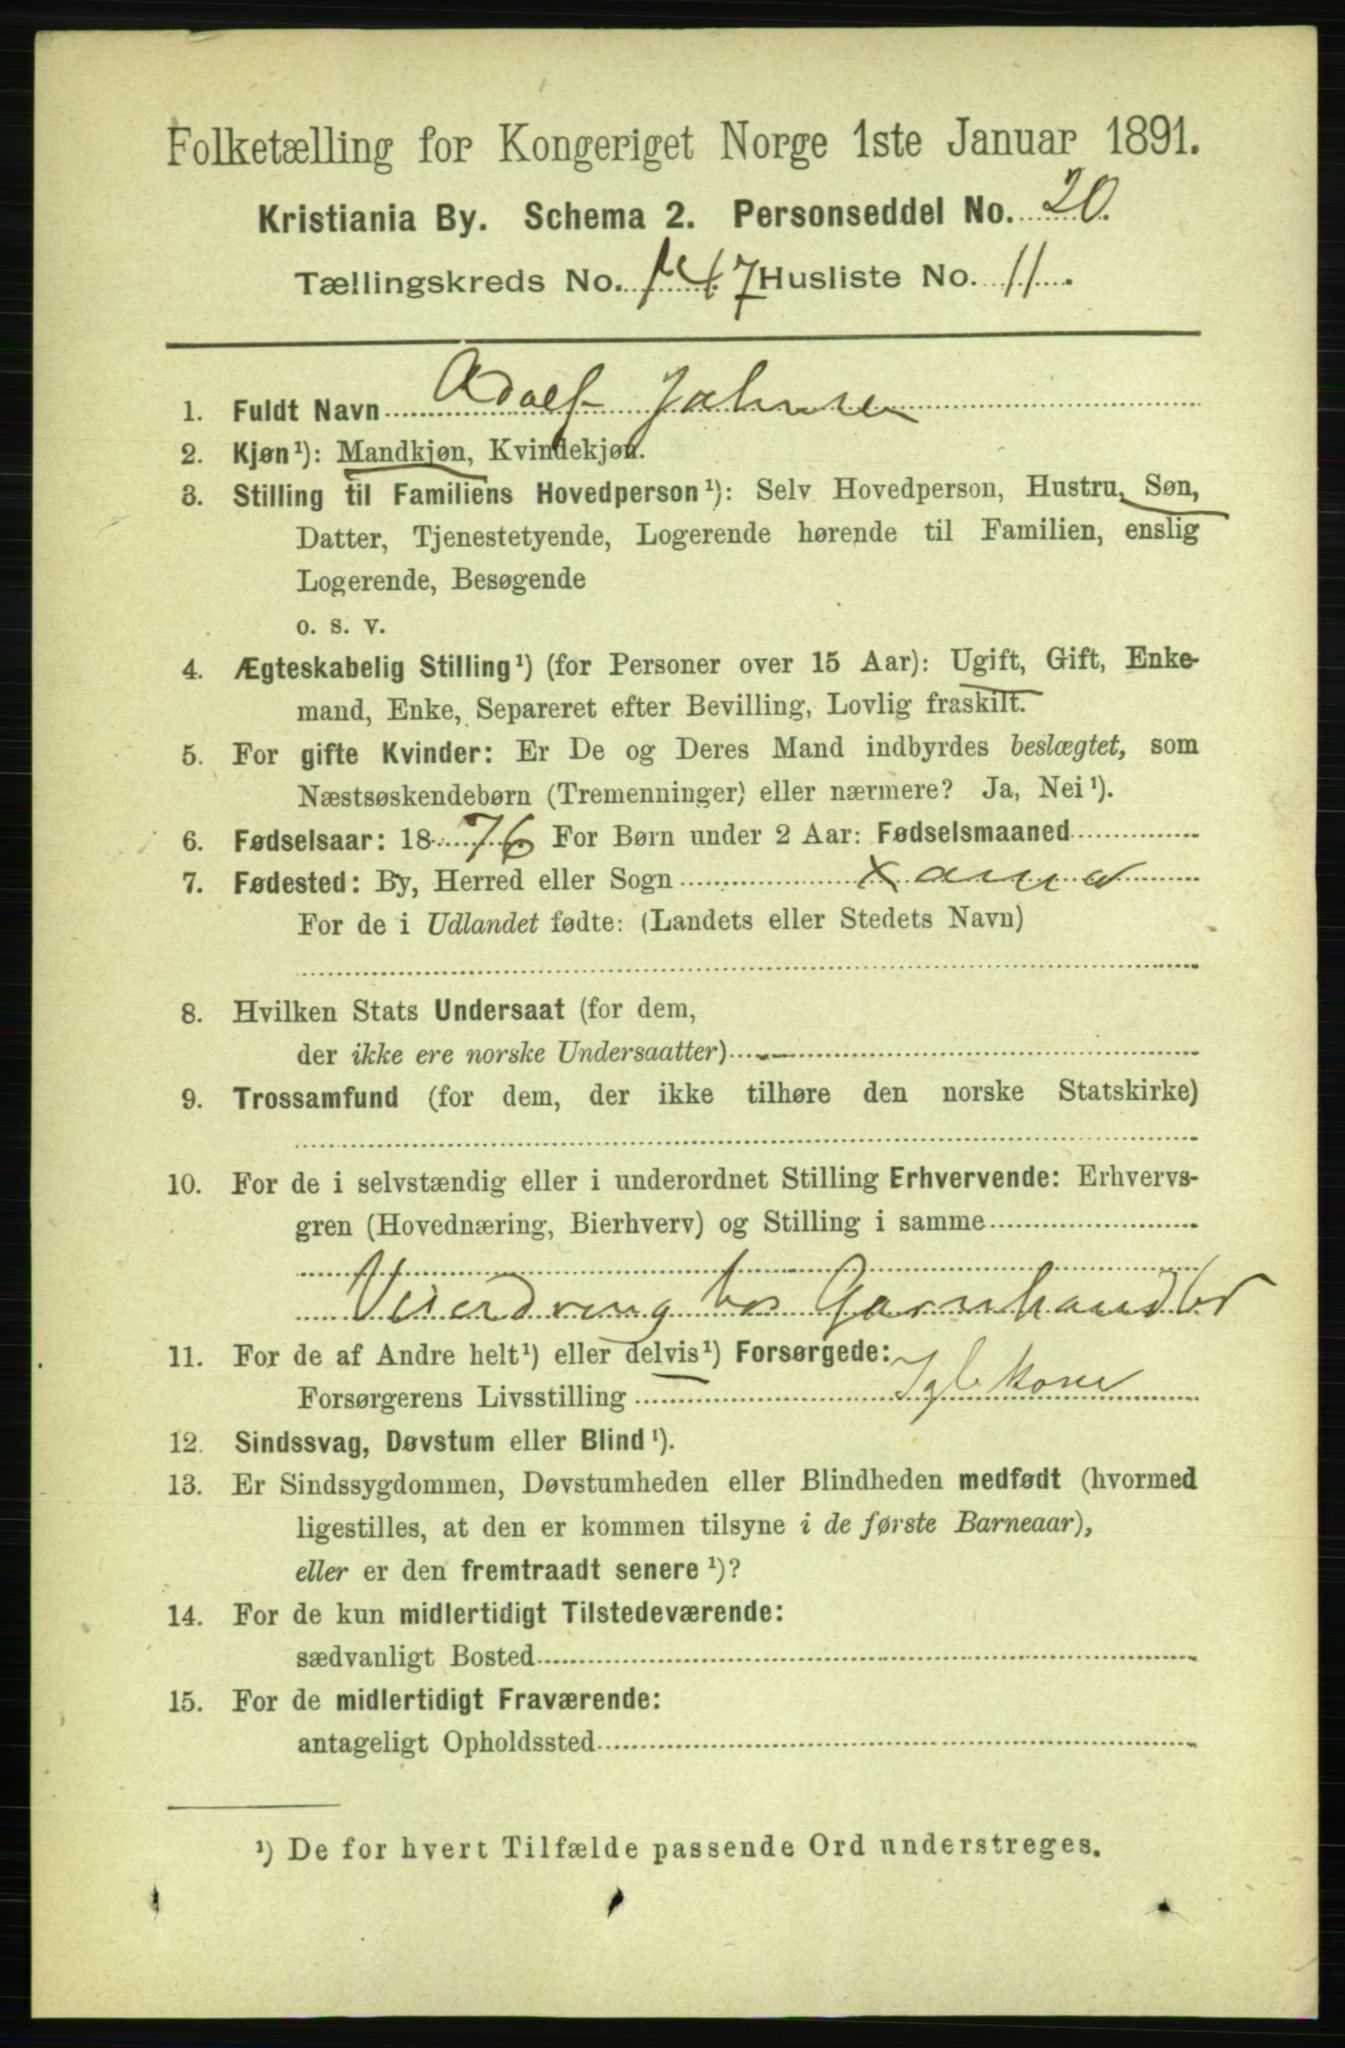 Folketælling for Kongeriget Norge 1ste Januar 1891.
Kristiania By. Schema 2. Personseddel No. 20.
Tællingskreds No. 147 Husliste No. 11.
1. Fuldt Navn Adolf Johnsen
2. Kjøn¹): Mandkjøn, Kvindekjøn.
3. Stilling til Familiens Hovedperson¹): Selv Hovedperson, Hustru, Søn,
Datter, Tjenestetyende, Logerende hørende til Familien, enslig
Logerende, Besøgende
o. s. v.
4. Ægteskabelig Stilling¹) (for Personer over 15 Aar): Ugift, Gift, Enke-
mand, Enke, Separeret efter Bevilling, Lovlig fraskilt.
5. For gifte Kvinder: Er De og Deres Mand indbyrdes beslægtet, som
Næstsøskendebørn (Tremenninger) eller nærmere? Ja, Nei¹).
6. Fødselsaar: 1876 For Børn under 2 Aar: Fødselsmaaned
7. Fødested: By, Herred eller Sogn Xania
For de i Udlandet fødte: (Landets eller Stedets Navn)
8. Hvilken Stats Undersaat (for dem,
der ikke ere norske Undersaatter)
9. Trossamfund (for dem, der ikke tilhøre den norske Statskirke)
10. For de i selvstændig eller i underordnet Stilling Erhvervende: Erhvervs-
gren (Hovednæring, Bierhverv) og Stilling i samme
hos Garnhandler
11. For de af Andre helt¹) eller delvis¹) Forsørgede:
Forsørgerens Livsstilling
12. Sindssvag, Døvstum eller Blind¹).
13. Er Sindssygdommen, Døvstumheden eller Blindheden medfødt (hvormed
ligestilles, at den er kommen tilsyne i de første Barneaar),
eller er den fremtraadt senere¹)?
14. For de kun midlertidigt Tilstedeværende:
sædvanligt Bosted
15. For de midlertidigt Fraværende:
antageligt Opholdssted
¹) De for hvert Tilfælde passende Ord understreges.